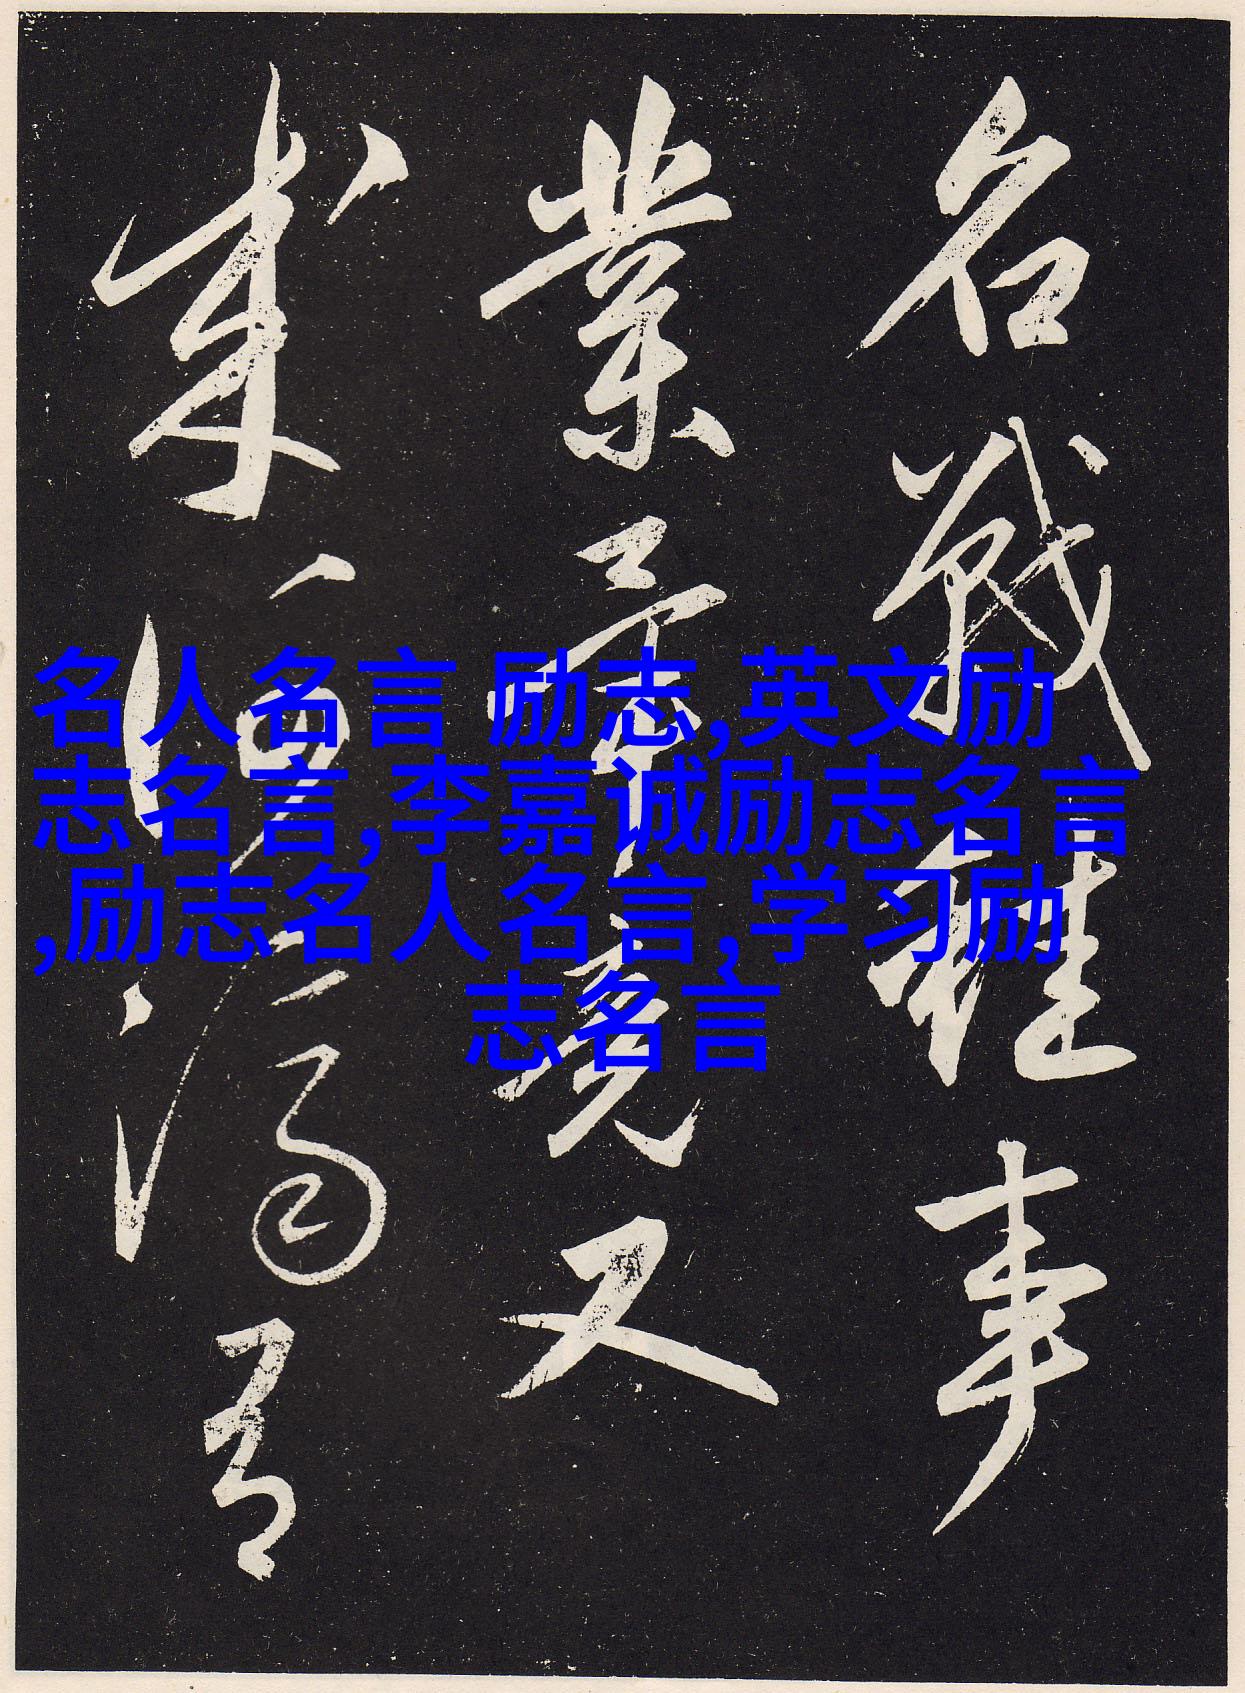 名戰雖事
業竟又
成何
名人名言 励志,英文励
志名言,李嘉诚励志名言
,励志名人名言,学习励
志名言